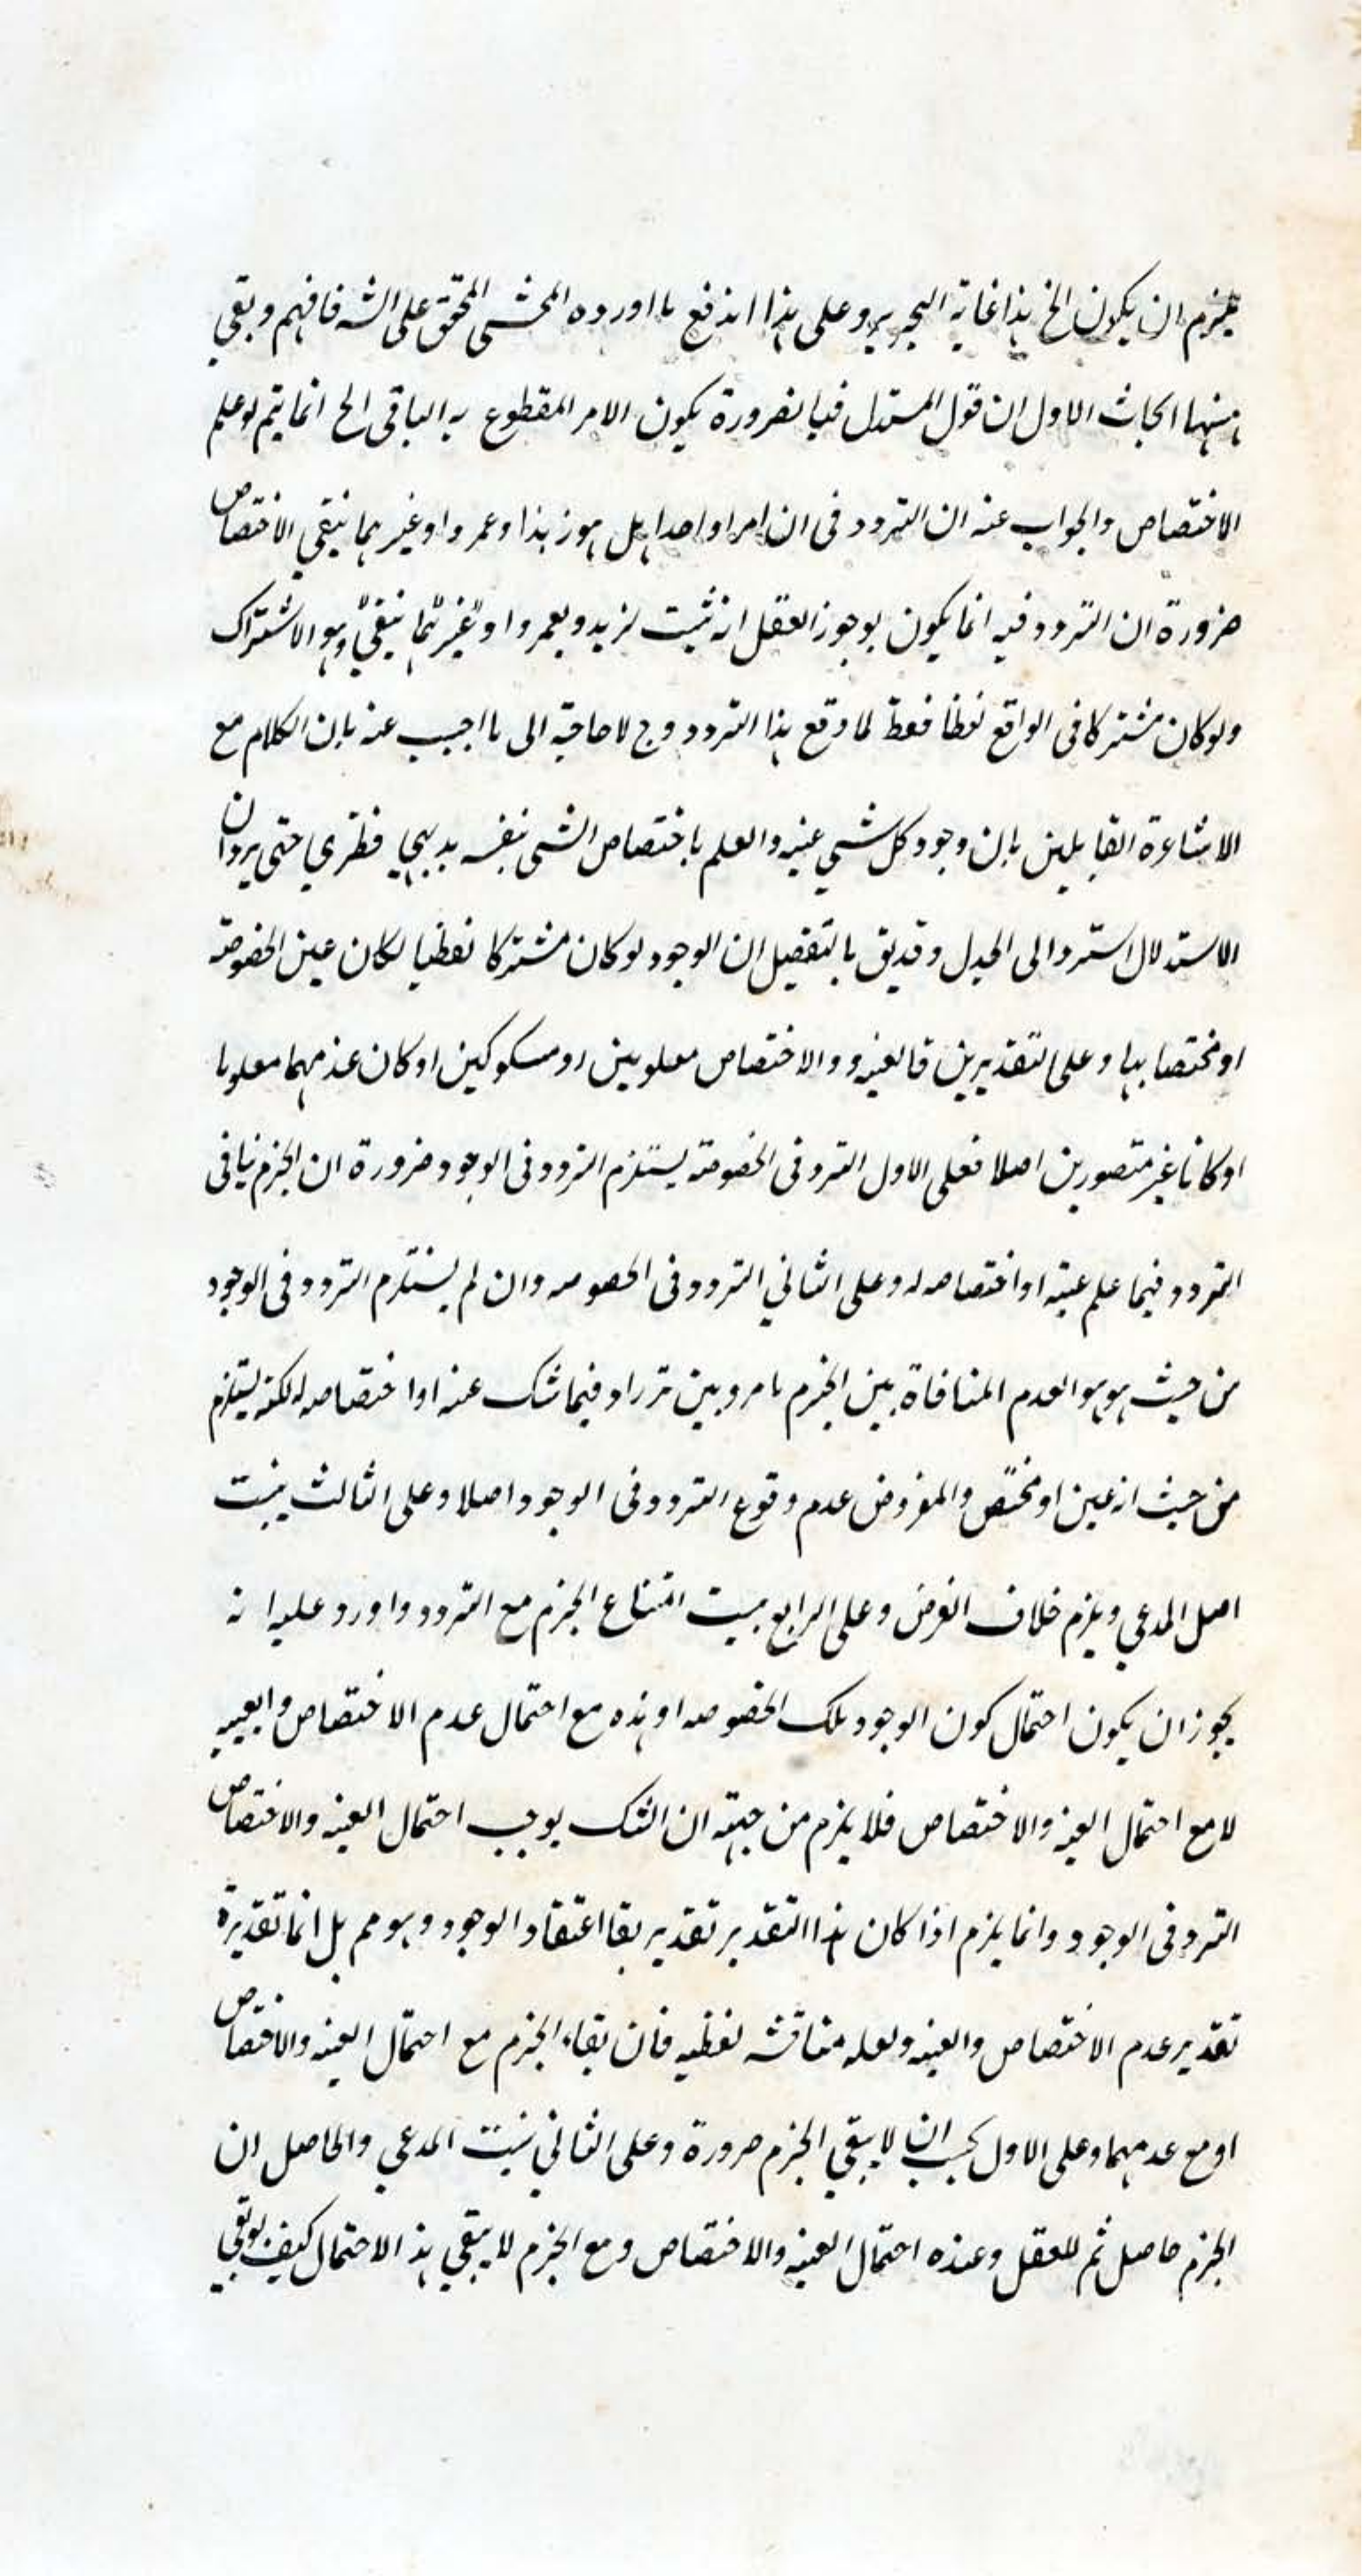 يلزم ان يكون الخ هذا غاية التحرير وعلى هذا اندفع ما اورده المحشى المحقق على الشه فافهم وبقي
ههنا ابحاث الاول ان قول المستدل فبالضرورة يكون الامر المقطوع به الباقى الخ انما يتم لو علم
الاختصاص والجواب عنه ان التردد فى ان امرا واحدا هل هو زيدا وعمرو او غيرهما ينفي الاختصاص
ضرورة ان التردد فيه انما يكون بوجوز العقل انه ثبت لزيد ولعمرو او غيرهما ينفي وهو الاشتراك
ولو كان مشتركا فى الواقع لفظا فقط لما وقع هذا التردد وح لا حاجة الى ما اجيب عنه بان الكلام مع
الاشاعرة القابلين بان وجود كل شي عينه والعلم باختصاص الشى بنفسه بديهي فطري حتى يرد ان
الاستدلال استرد الى الجدل وقد يق بالتفصيل ان الوجود لو كان مشتركا لفظيا لكان عين الخصوصة
او مختصا بها وعلى التقديرين فالعينه والاختصاص معلومين او مشكوكين او كان عدمهما معلوما
او كانا غير متصورين اصلا فعلى الاول الترد فى الخصوصة يستلزم التردد فى الوجود ضرورة ان الجزم ينافى
التردد فيما علم عينه او اختصاصه له وعلى الثاني التردد فى الخصوصه وان لم يستلزم التردد فى الوجود
من حيث هو هو لعدم المنافاة بين الجزم بامر وبين تردد فيما شك عنه او اختصاصه له لكنه يستلزم
من حيث انه عين او مختص والمفروض عدم وقوع التردد فى الوجود اصلا وعلى الثالث يثبت
اصل المدعي ويلزم خلاف الفرض وعلى الرابع يثبت امتناع الجزم مع التردد واورد عليه انه
يجوز ان يكون احتمال كون الوجود تلك الخصوصه او هذه مع احتمال عدم الاختصاص والعينيه
لا مع احتمال العينه والاختصاص فلا يلزم من جهته ان الشك يوجب احتمال العينه والاختصاص
الترد فى الوجود وانما يلزم اذا كان هذا التقدير تقدير بقا اعتقاد الوجود وهو مم بل انما تقديره
تقدير عدم الاختصاص والعينه ولعله مناقشه لفظيه فان بقاء الجزم مع احتمال العينه والاختصاص
او مع عدمهما وعلى الاول يجب ان لا يبقي الجزم ضرورة وعلى الثاني يثبت المدعي والحاصل ان
الجزم حاصل ثم للعقل وعنده احتمال العينه والاختصاص ومع الجزم لا يبقي هذ الاحتمال كيف لو بقي